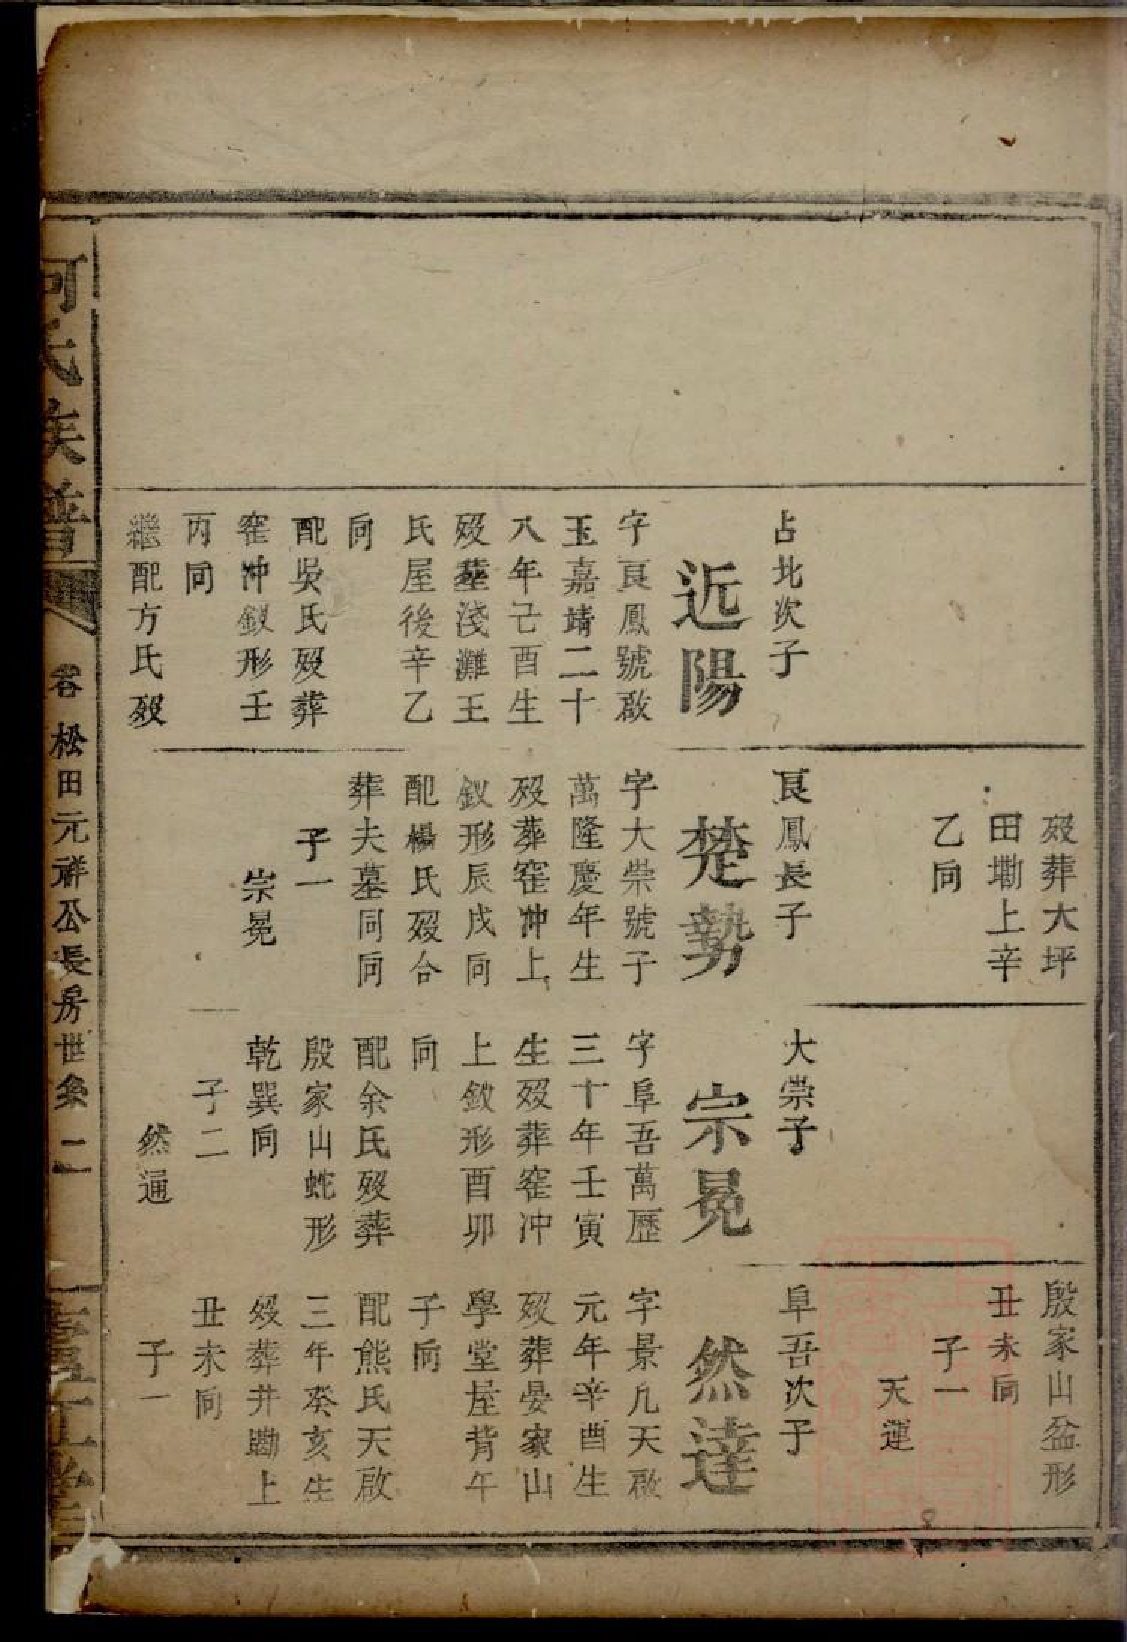 占北次子
近陽
字良鳳號啟
玉嘉靖二十
八年己酉生
歿塟淺灘王
氏屋後辛乙
向
配吳氏歿葬
窑冲釵形壬
丙同
繼配方氏歿
歿葬大坪
田墈上辛
乙同
良鳳長子
楚勢
字大崇號子
萬隆慶年生
歿葬窑冲上
釵形辰戌向
配楊氏歿合
葬夫墓同向
子一
崇冕
大崇子
宗冕
字阜吾萬歷
三十年壬寅
生歿葬窑冲
上釵形酉卯
向
配余氏歿葬
殷家山蛇形
乾巽向
子二
然通
殷家山盆形
丑未向
子一
天運
阜吾次子
然達
字景凢天啟
元年辛酉生
歿葬晏家山
學堂屋背午
子向
配熊氏天啟
三年癸亥生
歿葬井墈上
丑未向
子一
河氏族譜
卷 松田元祥公長房世系 二